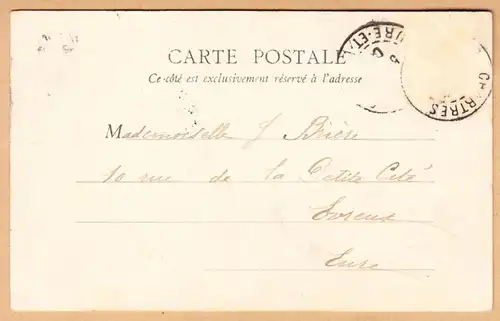 CARTE POSTALE
Ce côté est exclusivement réservé à l'adresse
CHARTRES
EURE-ET-
Mademoiselle J Brière
10 rue de la Petite Cité
Evreux
Eure